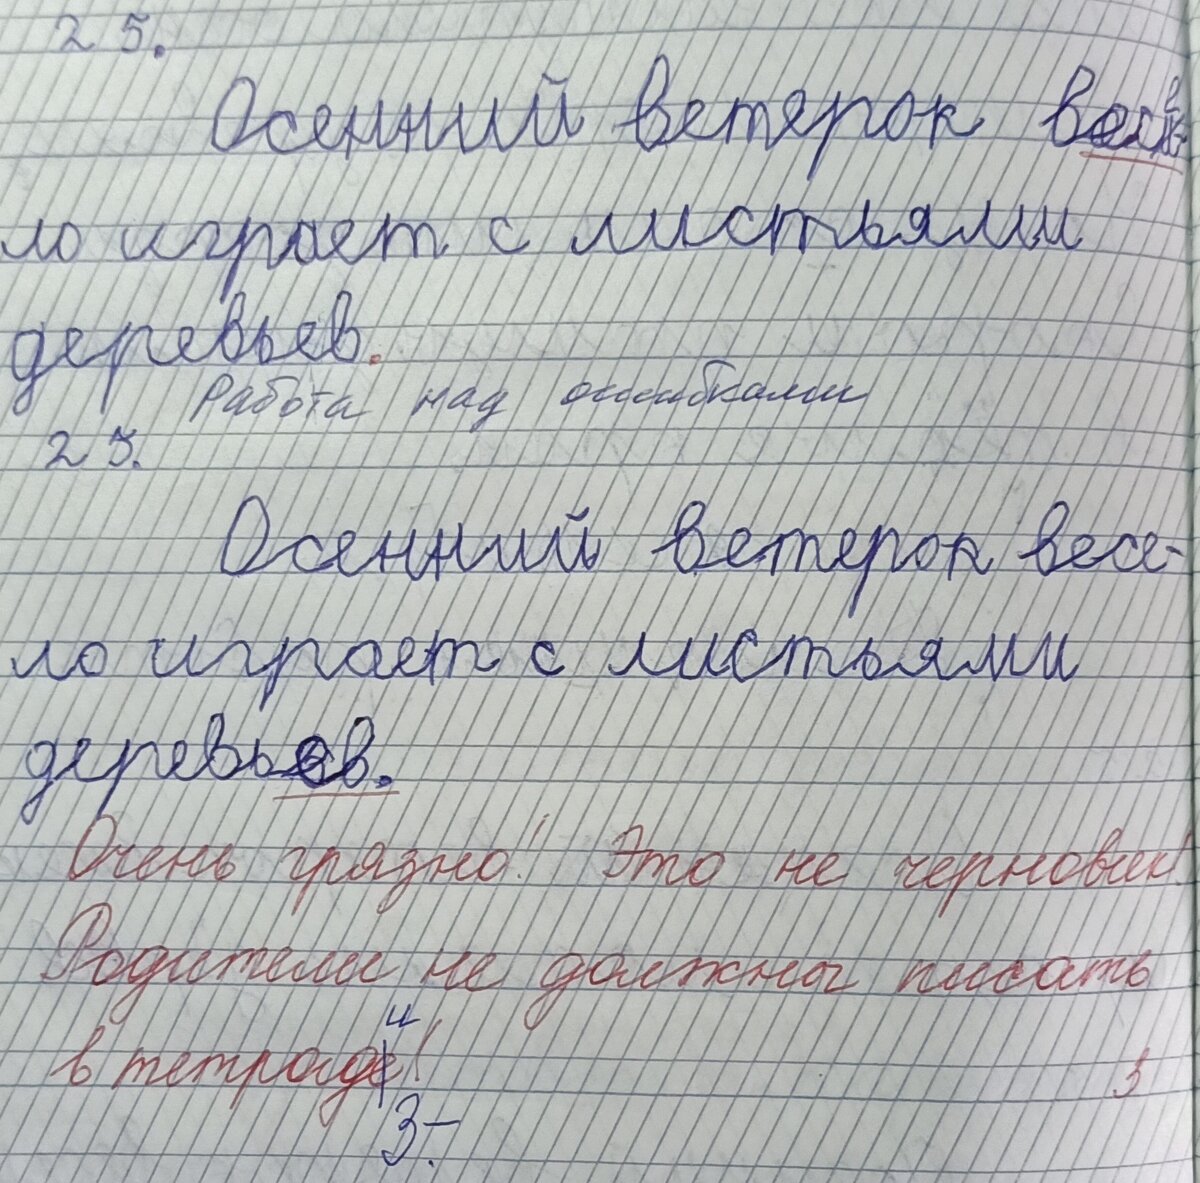 25.
Осенний ветерок весе-
ло играет с листьями
деревьев.
Работа над ошибками
25.
Осенний ветерок весе-
ло играет с листьями
деревьев.
Очень грязно! Это не черновик!
Родители не должны писать
и
в тетраде!
3
3-.